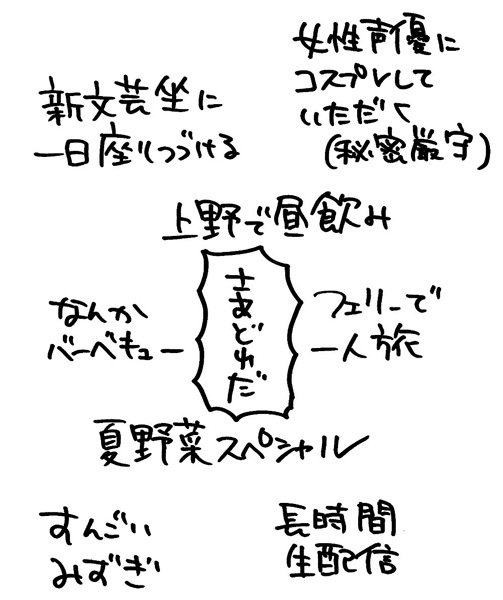 新文芸坐に
一日座りつづける
女性声優に
コスプレして
いただく
(秘密厳守)
上野で昼飲み
なんか
バーベキュー
さあどれだ
フェリーで
一人旅
夏野菜スペシャル
すんごい
みずぎ
長時間
生配信